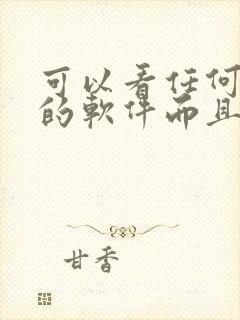 可以看任何
的軟件而且
甘香